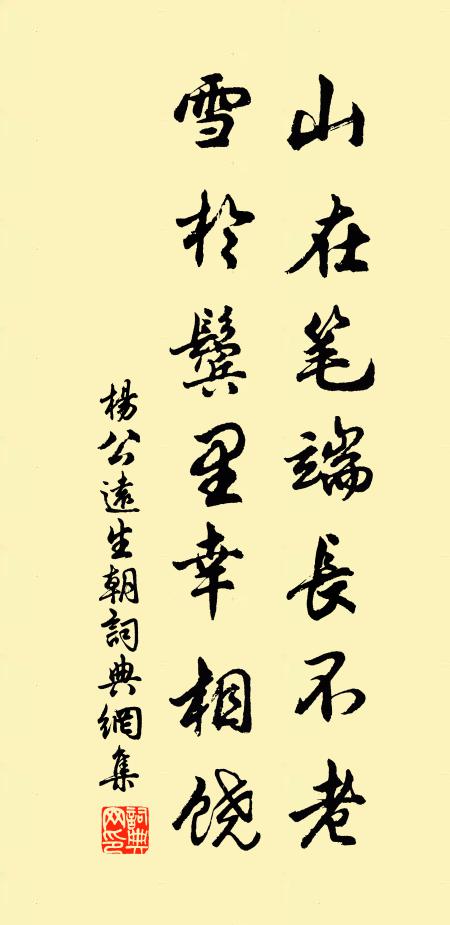 山在笔端長不老
雪於鬓里幸相饶
楊公遠生朝詞典網集
詞典网印